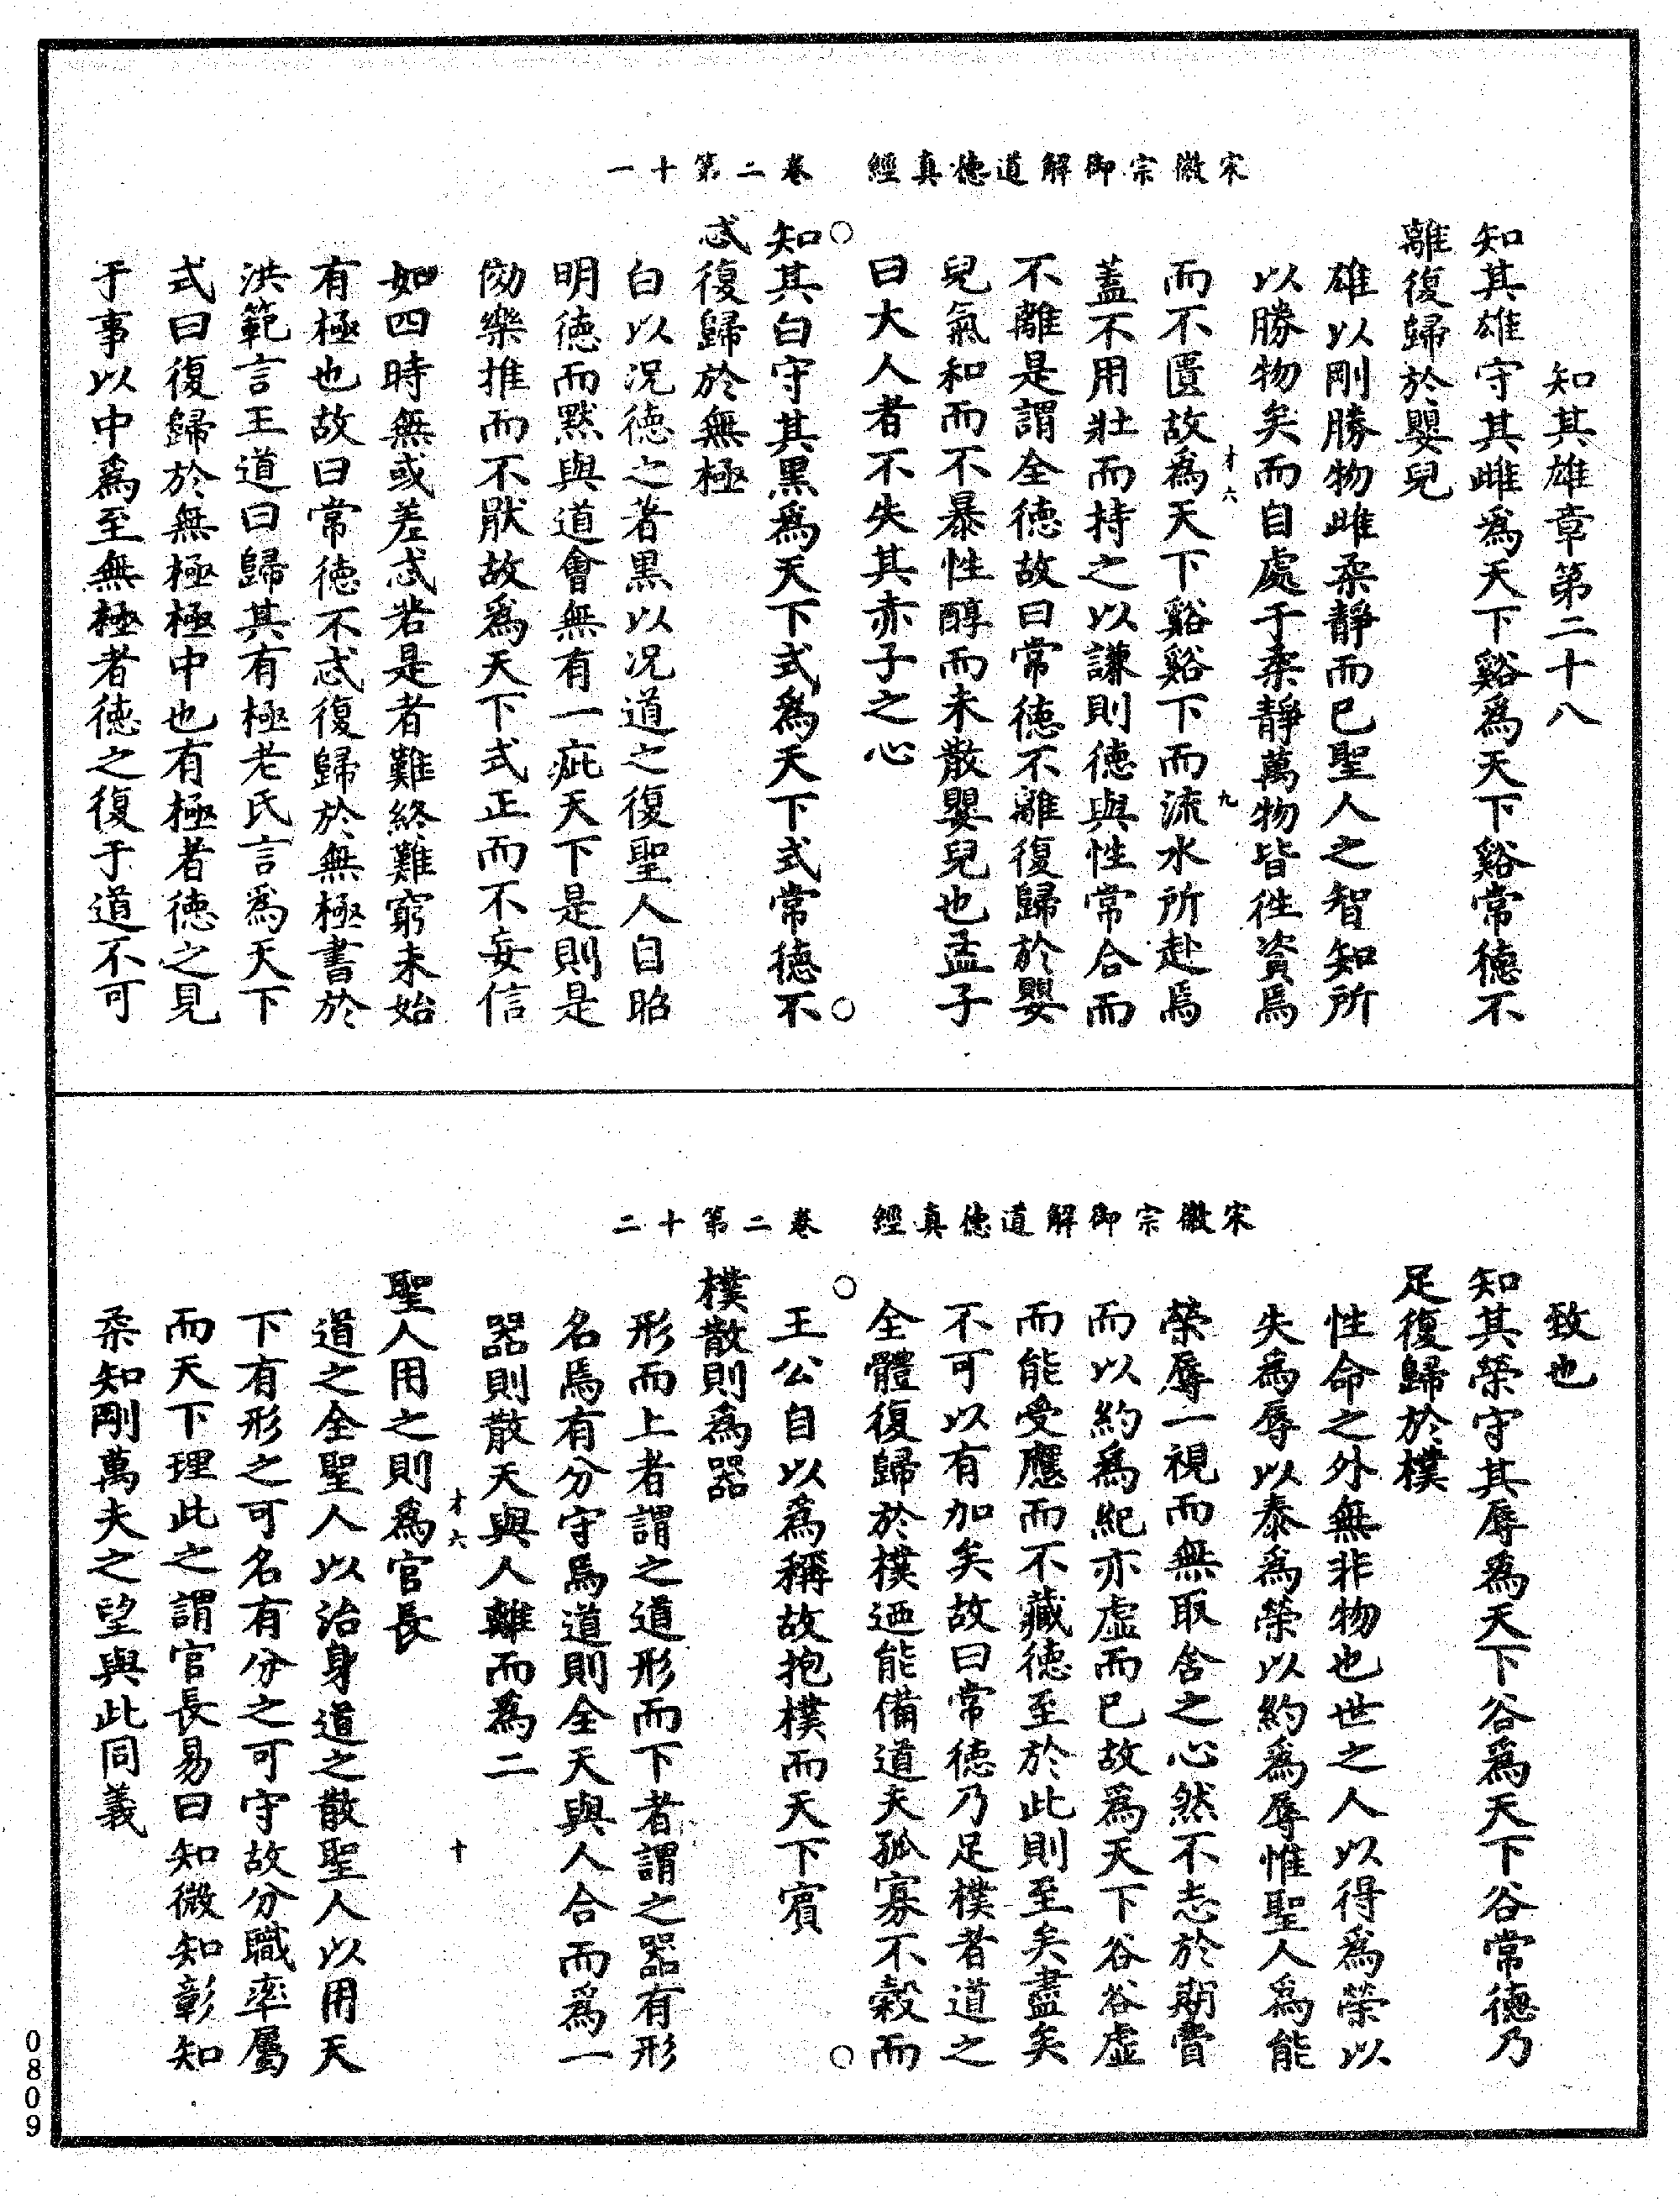 宋徽宗御解道德真經　卷二第十一
知其雄章第二十八
知其雄守其雌爲天下谿爲天下谿常德不
離復歸於嬰兒
雄以剛勝物雌柔靜而已聖人之智知所
以勝物矣而自處于柔靜萬物皆徃資焉
而不匱故爲天下谿谿下而流水所赴焉
才六
九
蓋不用壯而持之以謙則德與性常合而
不離是謂全德故曰常德不離復歸於嬰
兒氣和而不暴性醇而未散嬰兒也孟子
曰大人者不失其赤子之心
知其白守其黑爲天下式爲天下式常德不
忒復歸於無極
白以况德之著黑以况道之復聖人自昭
明德而默與道會無有一疵天下是則是
傚樂推而不猒故爲天下式正而不妄信
如四時無或差忒若是者難終難窮未始
有極也故曰常德不忒復歸於無極書於
洪範言王道曰歸其有極老氏言爲天下
式曰復歸於無極極中也有極者德之見
于事以中爲至無極者德之復于道不可
宋徽宗御解道德真經　卷二第十二
致也
知其榮守其辱爲天下谷爲天下谷常德乃
足復歸於樸
性命之外無非物也世之人以得爲榮以
失爲辱以泰爲榮以約爲辱惟聖人爲能
榮辱一視而無取舍之心然不志於期費
而以約爲紀亦虛而已故爲天下谷谷虛
而能受應而不藏德至於此則至矣盡矣
不可以有加矣故曰常德乃足樸者道之
全體復歸於樸迺能備道夫孤寡不穀而
王公自以爲稱故抱樸而天下賓
樸散則爲器
形而上者謂之道形而下者謂之器有形
名焉有分守焉道則全天與人合而爲一
器則散天與人離而爲二
才六
十
聖人用之則爲官長
道之全聖人以治身道之散聖人以用天
下有形之可名有分之可守故分職率屬
而天下理此之謂官長易曰知微知彰知
柔知剛萬夫之望與此同義
0809